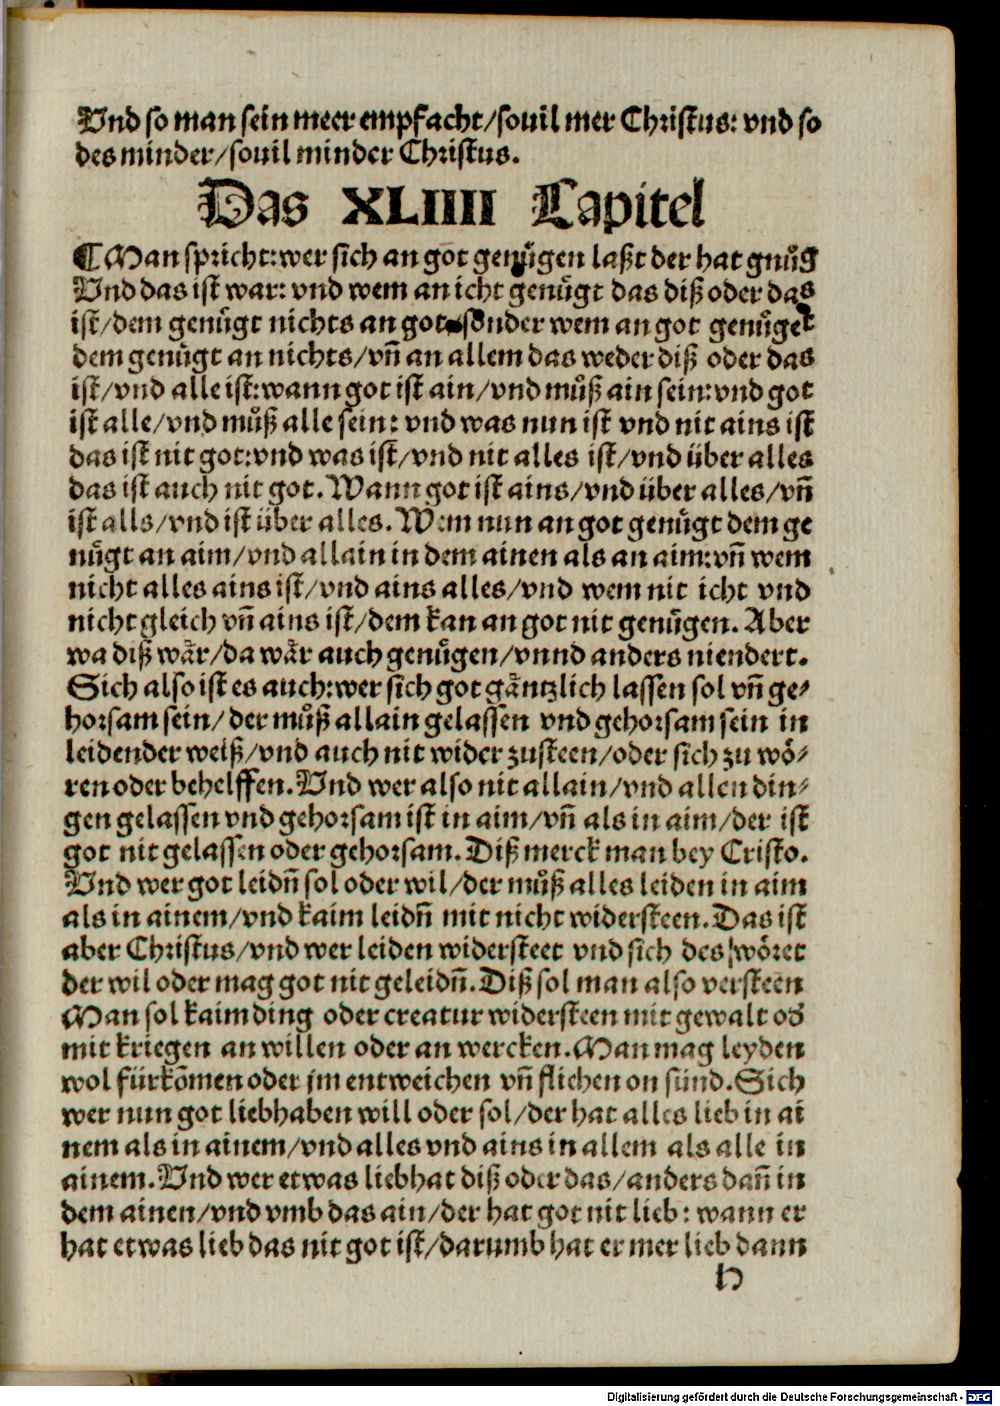 Vnd so man sein meer empfacht/souil mer Christus: vnd so
des minder/souil minder Christus.
Das XLIIII Capitel
¶Man spricht:wer sich an got genuͤgen laßt der hat gnuͤg
Vnd das ist war: vnd wem an icht genuͤgt das diß oder das
ist/dem genuͤgt nichts an got sonder wem an got genuͤget
dem genuͤgt an nichts/vñ an allem das weder diß oder das
ist/vnd alle ist:wann got ist ain/vnd muͦß ain sein:vnd got
ist alle/vnd muͦß alle sein: vnd was nun ist vnd nit ains ist
das ist nit got:vnd was ist/vnd nit alles ist/vnd über alles
das ist auch nit got. Wann got ist ains/vnd über alles/vñ
ist alls/vnd ist über alles. Wem nun an got genuͤgt dem ge
nuͤgt an aim/vnd allain in dem ainen als an aim:vñ wem
nicht alles ains ist/vnd ains alles/vnd wem nit icht vnd
nicht gleich vñ ains ist/dem kan an got nit genuͤgen. Aber
wa diß waͤr/da waͤr auch genuͤgen/vnnd anders niendert.
Sich also ist es auch:wer sich got gaͤntzlich lassen sol vñ ge⸗
horsam sein/der muͦß allain gelassen vnd gehorsam sein in
leidender weiß/vnd auch nit wider zusteen/oder sich zu woͤ⸗
ren oder behelffen. Vnd wer also nit allain/vnd allen din⸗
gen gelassen vnd gehorsam ist in aim/vñ als in aim/der ist
got nit gelassen oder gehorsam. Diß merck man bey Cristo.
Vnd wer got leidñ sol oder wil/der muͦß alles leiden in aim
als in ainem/vnd kaim leidñ mit nicht widersteen. Das ist
aber Christus/vnd wer leiden widersteet vnd sich des woͤret
der wil oder mag got nit geleidñ. Diß sol man also versteen
Man sol kaim ding oder creatur widersteen mit gewalt od'
mit kriegen an willen oder an wercken. Man mag leyden
wol fürkõmen oder jm entweichen vñ fliehen on sünd. Sich
wer nun got liebhaben will oder sol/der hat alles lieb in ai
nem als in ainem/vnd alles vnd ains in allem als alle in
ainem. Vnd wer etwas liebhat diß oder das/anders dañ in
dem ainen/vnd vmb das ain/der hat got nit lieb: wann er
hat etwas lieb das nit got ist/darumb hat er mer lieb dann
H
Digitalisierung gefördert durch die Deutsche Forschungsgemeinschaft - DFG